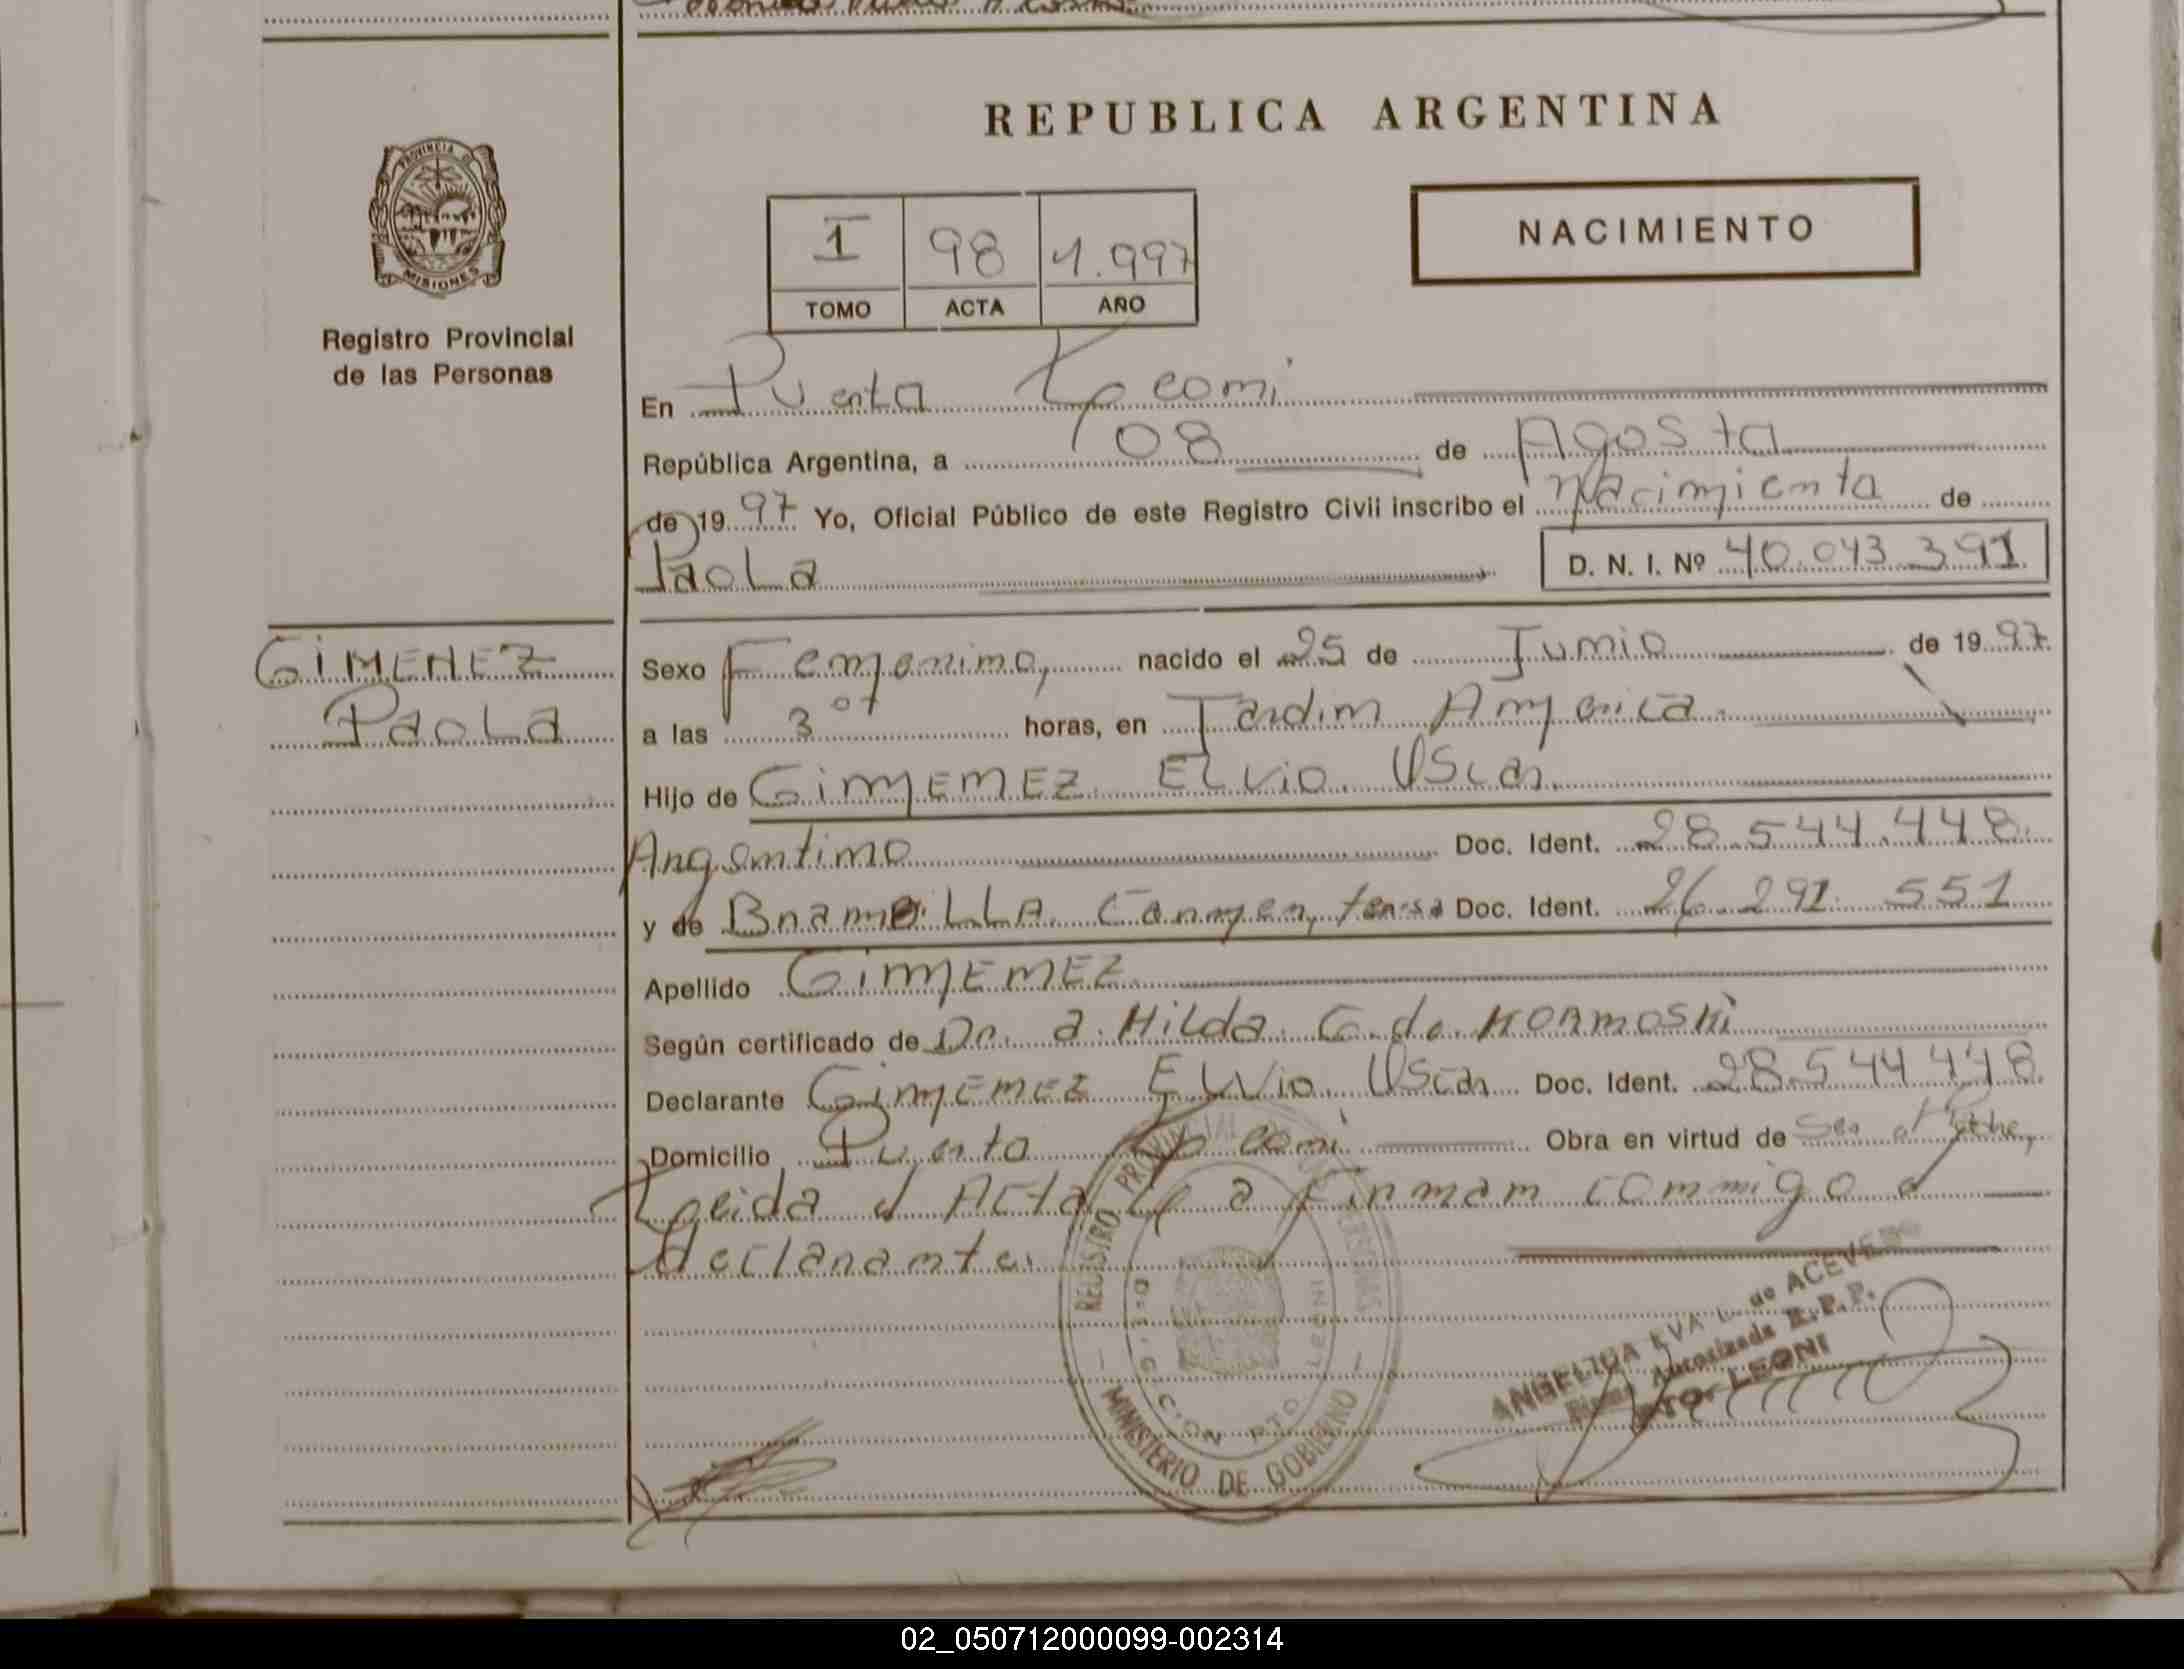 REPUBLICA ARGENTINA
PROVINCIA DE
MISIONES
Registro Provincial
de las Personas
I 98 1.997
TOMO ACTA AÑO
NACIMIENTO
En Puerto Leoni
República Argentina, a 08 de Agosto
de 1997 Yo, Oficial Público de este Registro Civil inscribo el Nacimiento de
Paola D. N. I. Nº 40.043.391
GIMENEZ
Paola
Sexo Femenino, nacido el 25 de Junio de 1997
a las 3 horas, en Jardin America.
Hijo de GIMENEZ Elvio Oscar
Argentino Doc. Ident. 28.544.448
y de Brambilla Carmen, teresa Doc. Ident. 26.291.551
Apellido GIMENEZ
Según certificado de Dr. a. Hilda G. de
Declarante GIMENEZ Elvio Oscar Doc. Ident. 28.544.448
Domicilio Puerto Leoni Obra en virtud de Ser el Padre,
Leida el Acta la firman conmigo el
declarante.
REGISTRO PROVINCIAL DE LAS PERSONAS
DELEGACION PTO LEONI
MINISTERIO DE GOBIERNO
ANGELICA EVA L. de ACEVEDO
Firma Autorizada R.P.P.
PTO. LEONI
02_050712000099-002314